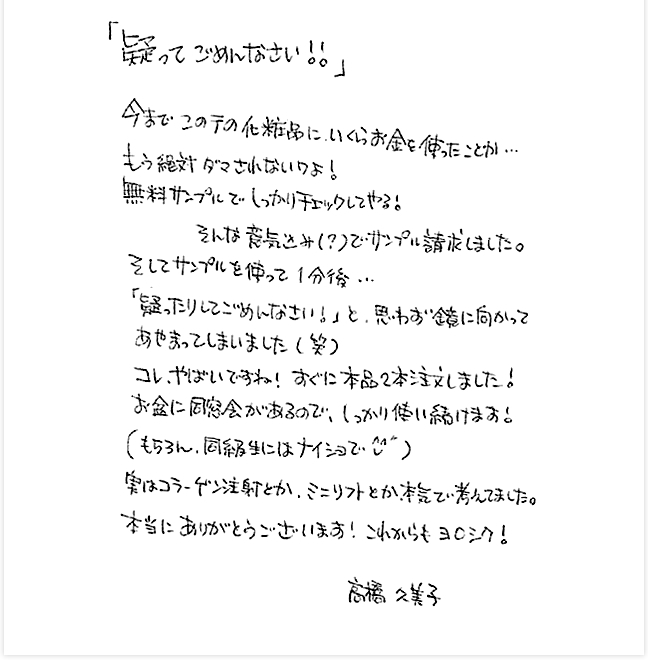 「疑って ごめんなさい!!」
今まで この手の化粧品に、いくらお金を使ったことか…
もう絶対ダマされないワよ!
無料サンプルで しっかりチェックしてやる!
そんな意気込み(?)でサンプル請求しました。
そしてサンプルを使って1分後…
「疑ったりしてごめんなさい!」と、思わず鏡に向かって
あやまってしまいました(笑)
コレ、やばいですね! すぐに本品2本注文しました!
お盆に同窓会があるので、しっかり使い続けます!
(もちろん、同級生にはナイショで^^)
実はコラーゲン注射とか、ミニリフトとか、本気で考えてました。
本当にありがとうございます! これからもヨロシク!
高橋 久美子